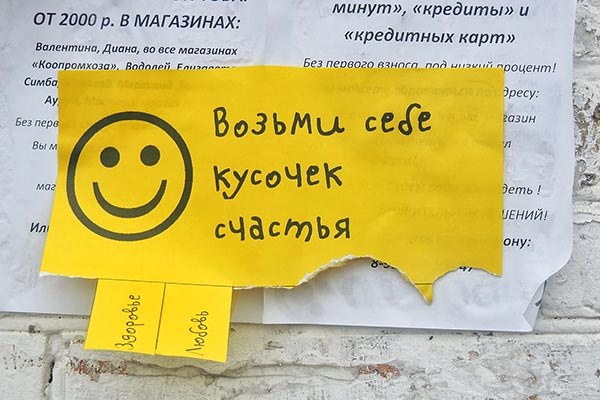 ОТ 2000 р. В МАГАЗИНАХ:
Валентина, Диана, во все магазинах
«Коопромхоза», Водолей, Елизавета
Симба,
Без перв
Вы м
маг
Или
минут», «кредиты» и
«кредитных карт»
Без первого взноса, под низкий процент!
дресу:
магазин
деть !
ШЕНИЙ!
ону:
47
Возьми себе
кусочек
счастья
Здоровье
Любовь